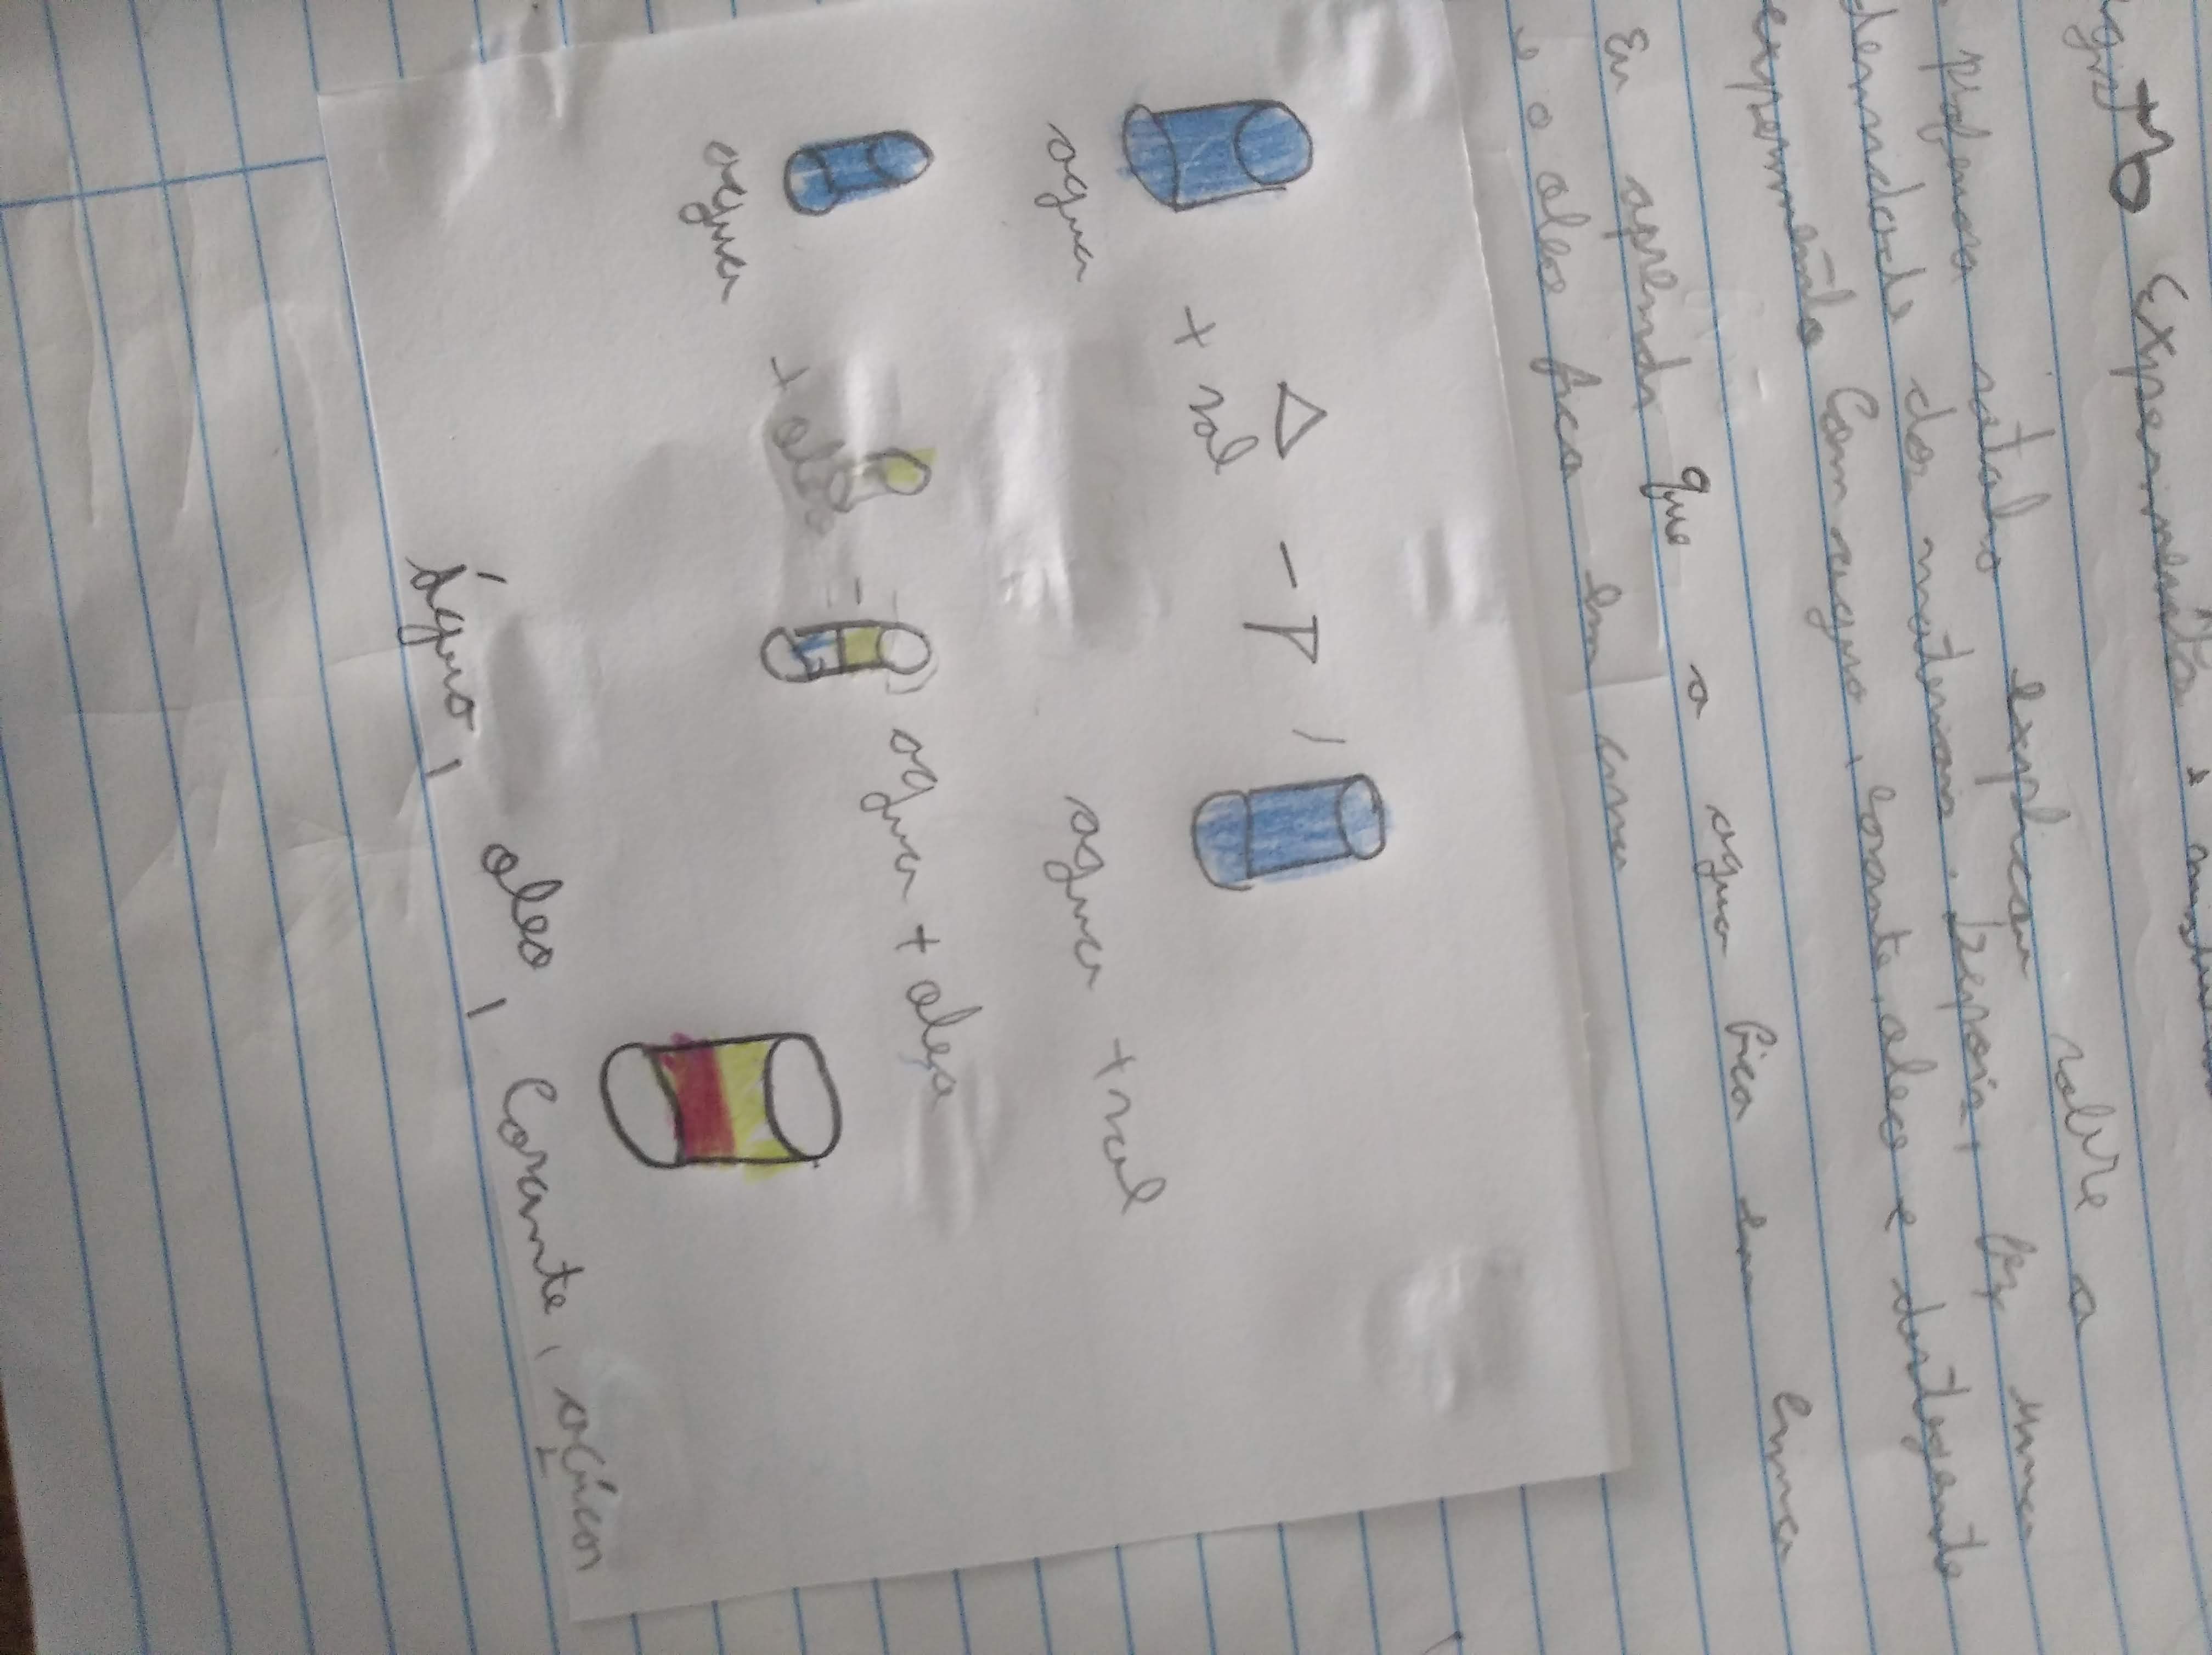 Experimentos e
professora sitalro explicou sobre a
densidade dos materiais. Depois, fez uma
experimento com agua, corante, oleo e destegente
Eu aprendi que a agua fica em cima
e o oleo fica em cima
+ sal
agua
agua + sal
agua
+ oleo
agua + olea
Água, oleo, Corante,